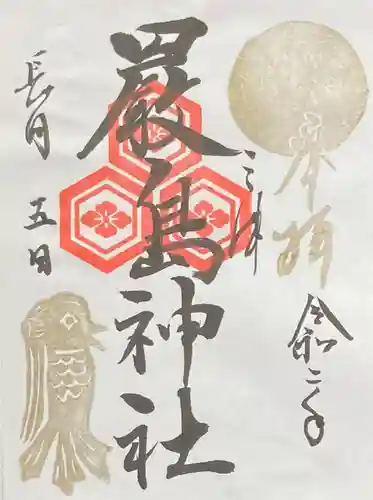 奉拝
令和二年
厳島神社
長月
五日